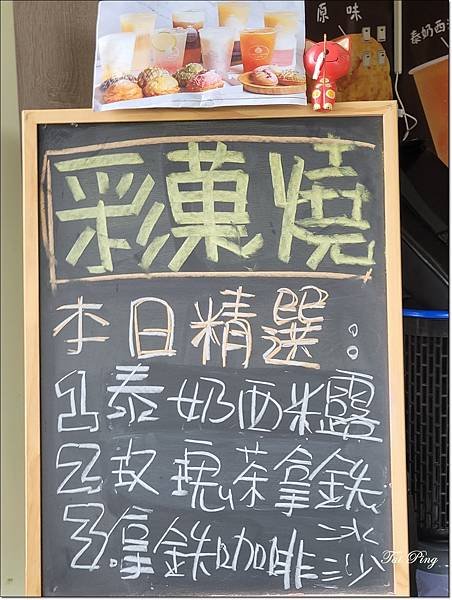 原味
泰奶西
彩菓燒
本日精選:
1泰奶西米露
2玫瑰茶拿鉄
3.拿鉄咖啡冰沙
Tai Ping